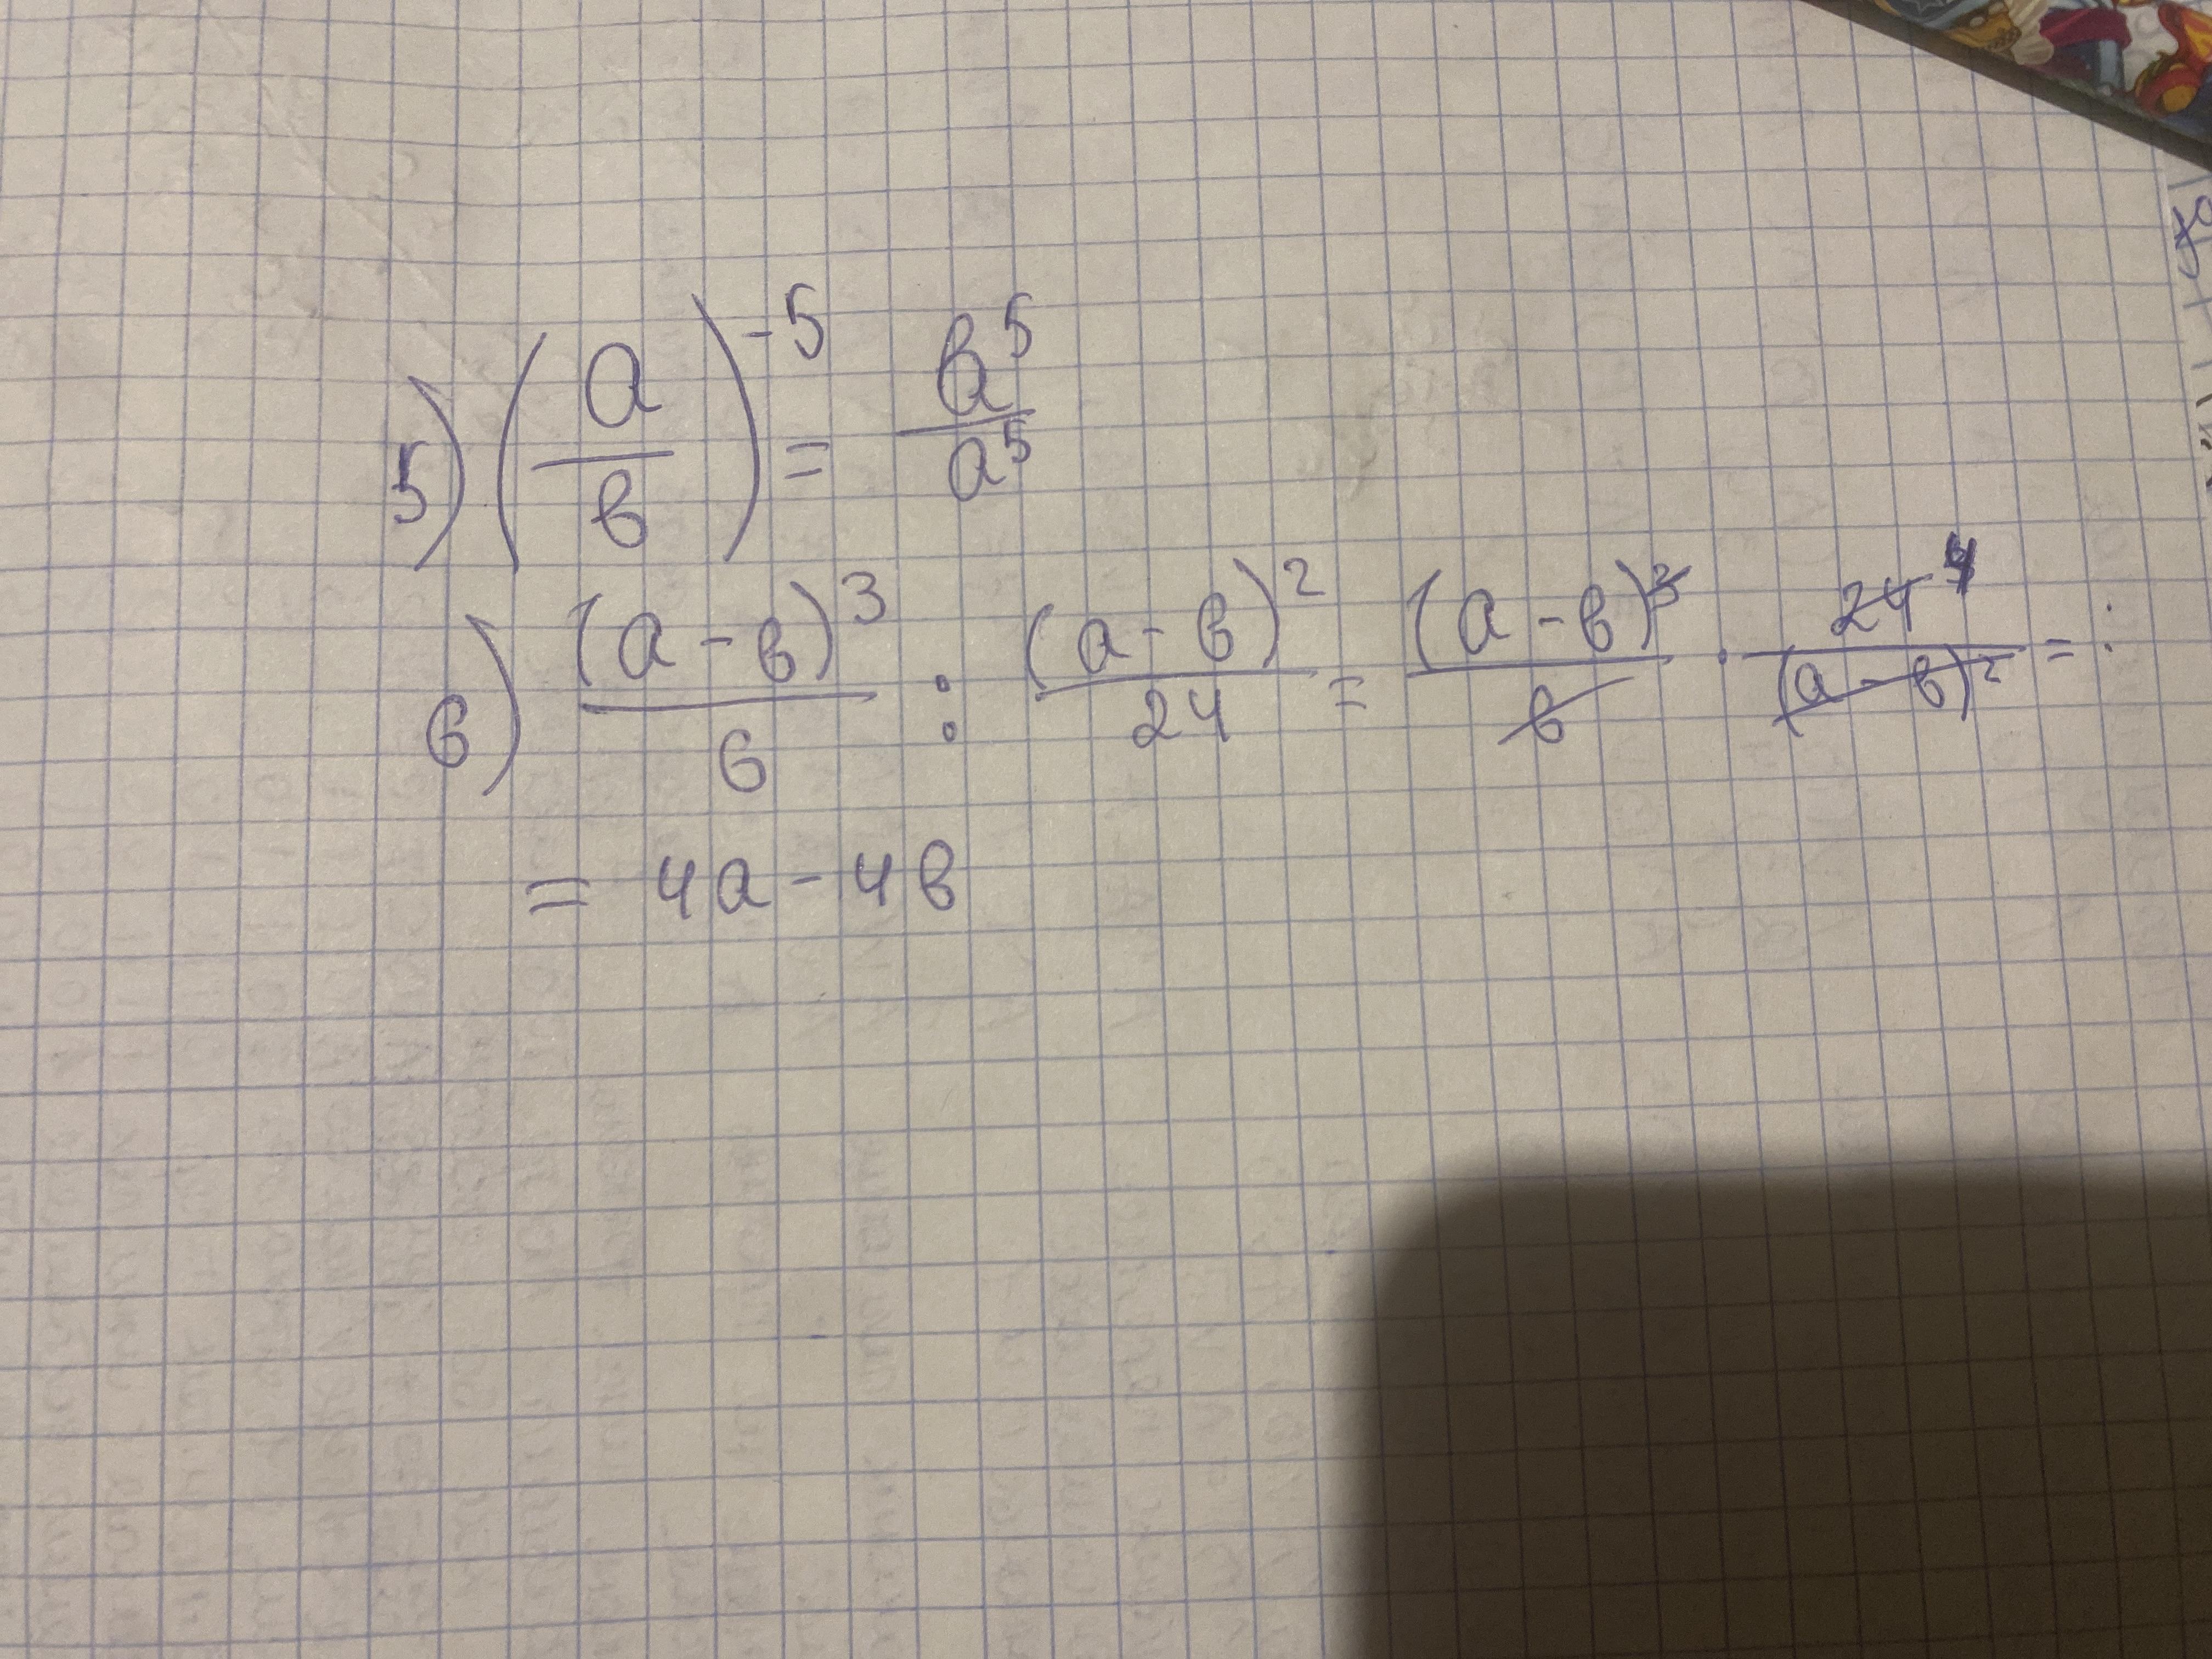 5) (a/в)^-5 = в^5/a^5
6) (a-в)^3/6 : (a-в)^2/24 = (a-в)^3/6 · 24 4/(a-в)^2 = :
= 4a-4в